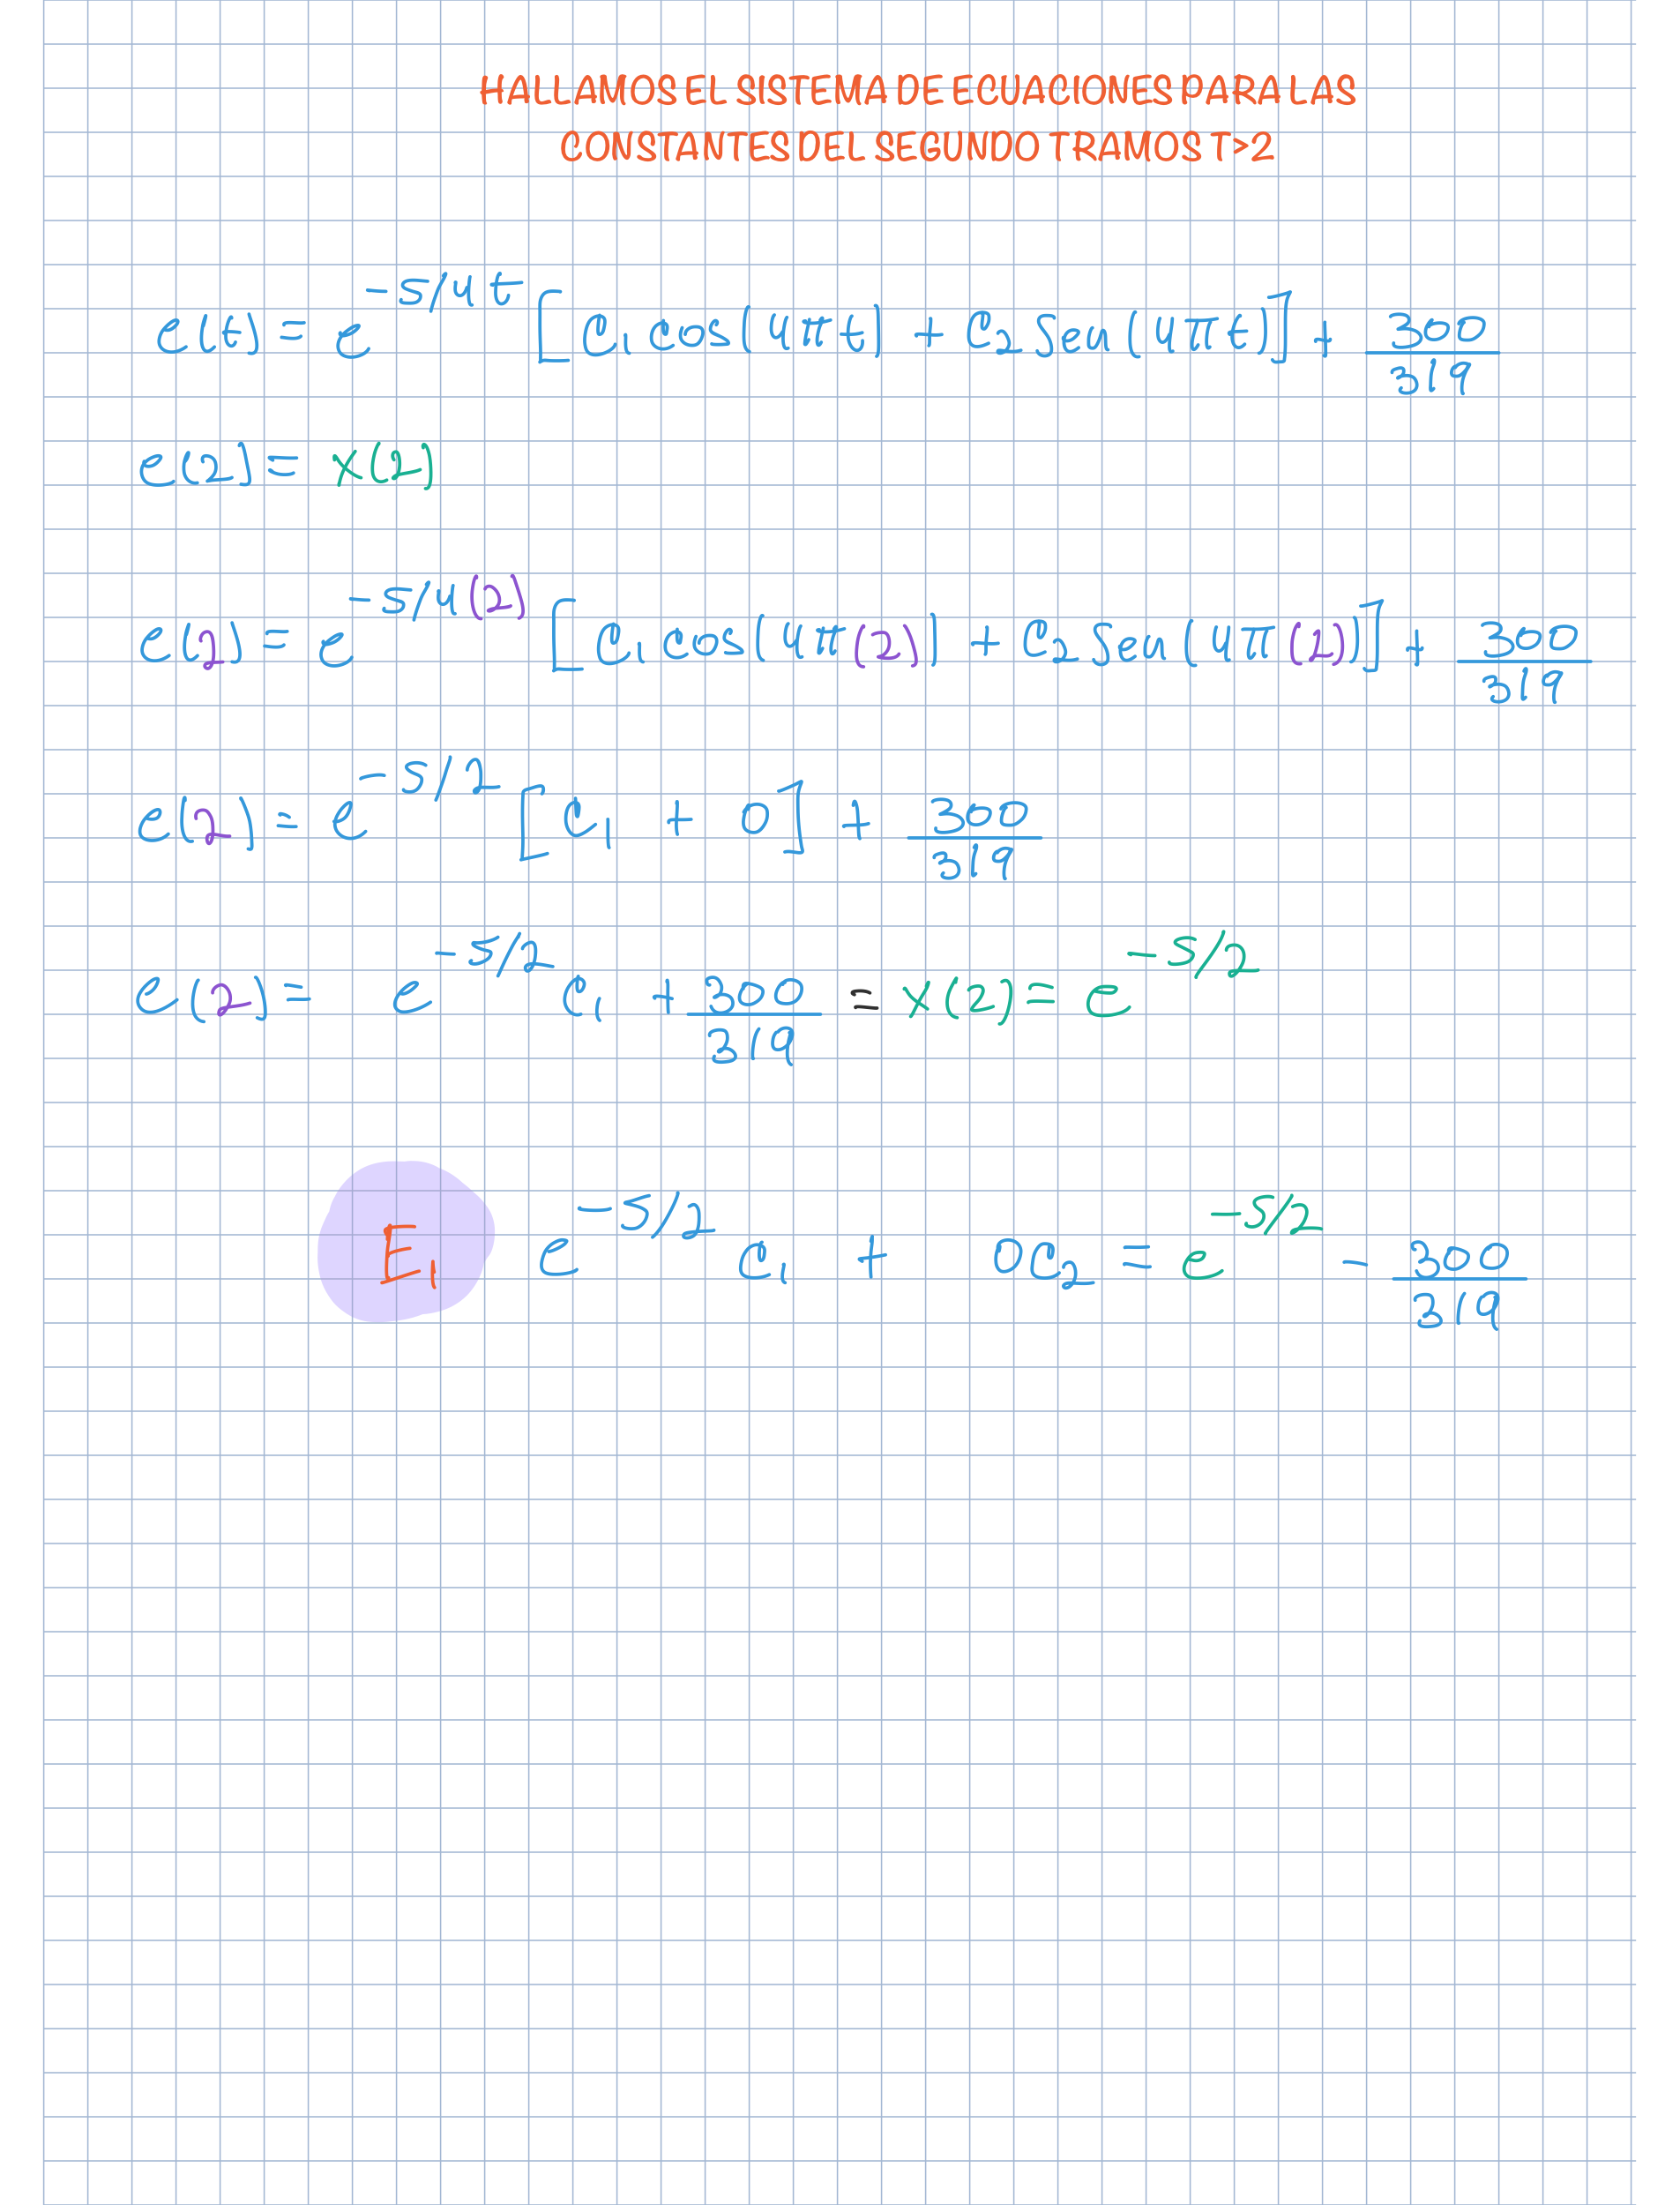 HALLAMOS EL SISTEMA DE ECUACIONES PARA LAS
CONSTANTES DEL SEGUNDO TRAMOS T>2
e(t) = e^{-5/4 t} [C₁ cos(4πt) + C₂ Sen(4πt)] + 300/319
e(2) = x(2)
e(2) = e^{-5/4(2)} [C₁ cos(4π(2)) + C₂ Sen(4π(2))] + 300/319
e(2) = e^{-5/2} [C₁ + 0] + 300/319
e(2) = e^{-5/2} C₁ + 300/319 = x(2) = e^{-5/2}
E₁ e^{-5/2} C₁ + 0C₂ = e^{-5/2} - 300/319